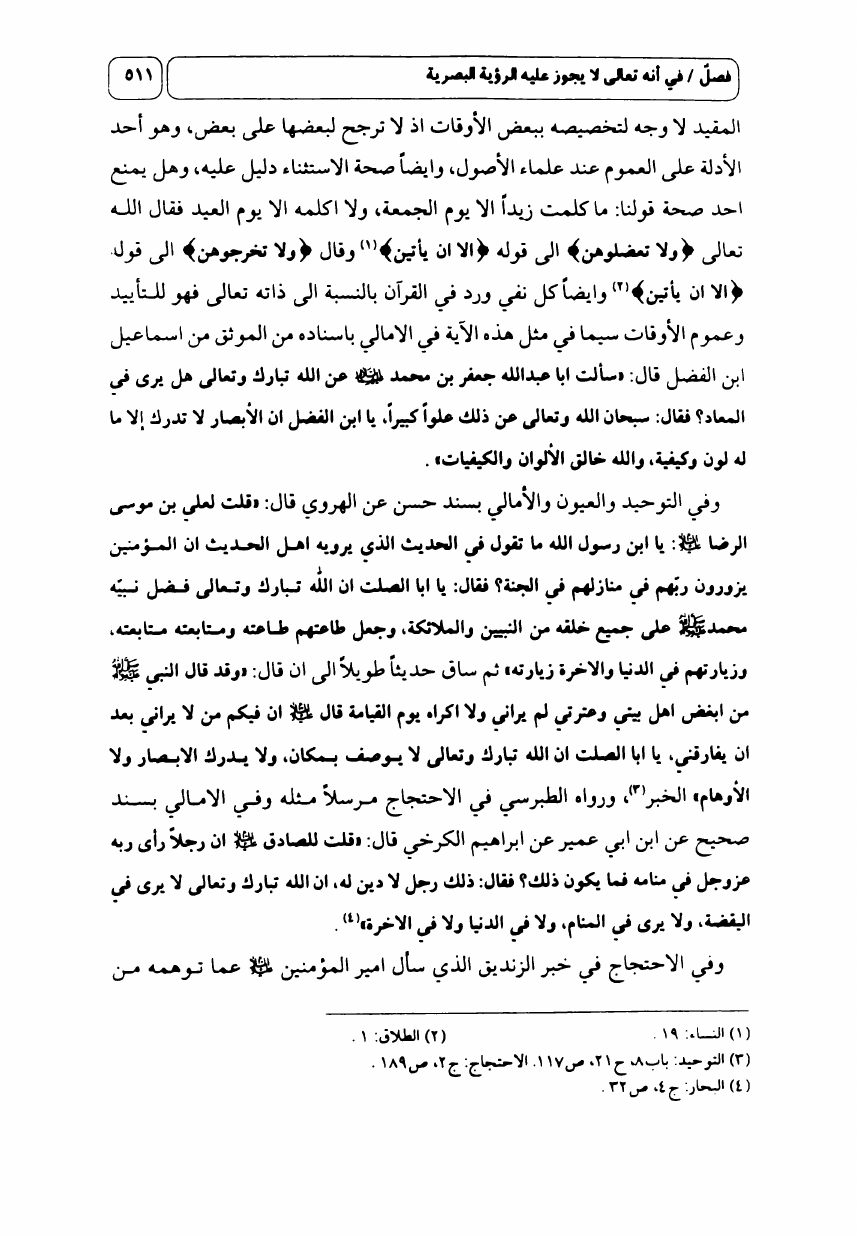 فصلّ / في أنه تعالى لا يجوز عليه الرؤية البصرية
٥١١
المقيد لا وجه لتخصيصه ببعض الأوقات اذ لا ترجح لبعضها على بعض، وهو أحد
الأدلة على العموم عند علماء الأصول، وايضاً صحة الاستثناء دليل عليه، وهل يمنع
احد صحة قولنا: ما كلمت زيداً الا يوم الجمعة، ولا اكلمه الا يوم العيد فقال اللـه
تعالى ﴿ولا تعضلوهن﴾ الى قوله ﴿الا ان يأتين﴾(١) وقال ﴿ولا تخرجوهن﴾ الى قوله
﴿الا ان يأتين﴾(٢) وايضاً كل نفي ورد في القرآن بالنسبة الى ذاته تعالى فهو للـتأييد
وعموم الأوقات سيما في مثل هذه الآية في الامالي باسناده من الموثق من اسماعيل
ابن الفضل قال: «سألت ابا عبدالله جعفر بن محمد عن الله تبارك وتعالى هل يرى في
المعاد؟ فقال: سبحان الله وتعالى عن ذلك علواً كبيراً، يا ابن الفضل ان الأبصار لا تدرك إلا ما
له لون وكيفية، والله خالق الألوان والكيفيات» .
وفي التوحيد والعيون والأمالي بسند حسن عن الهروي قال: «قلت لعلي بن موسى
الرضا : يا ابن رسول الله ما تقول في الحديث الذي يرويه اهـل الحـديث ان المـؤمنين
يزورون ربّهم في منازلهم في الجنة؟ فقال: يا ابا الصلت ان الله تـبارك وتـعالى فـضل نـبيّه
محمدﷺ على جميع خلقه من النبيين والملائكة، وجعل طاعتهم طـاعته ومـتابعته مـتابعته،
وزيارتهم في الدنيا والاخرة زيارته» ثم ساق حديثاً طويلاً الى ان قال: «وقد قال النبي ﷺ
من ابغض اهل بيتي وعترتي لم يراني ولا اكراه يوم القيامة قال ان فيكم من لا يراني بعد
ان يفارقني، يا ابا الصلت ان الله تبارك وتعالى لا يـوصف بـمكان، ولا يـدرك الابـصار ولا
الأوهام» الخبر(٣)، ورواه الطبرسي في الاحتجاج مـرسلاً مـثله وفـي الامـالي بسـند
صحيح عن ابن ابي عمير عن ابراهيم الكرخي قال: «قلت للصادق ان رجلاً رأى ربه
عزوجل في منامه فما يكون ذلك؟ فقال: ذلك رجل لا دين له، ان الله تبارك وتعالى لا يرى في
اليقضة، ولا يرى في المنام، ولا في الدنيا ولا في الاخرة»(٤) .
وفي الاحتجاج في خبر الزنديق الذي سأل امير المؤمنين عما تـوهمه مـن
(١) النساء: ١٩ .
(٢) الطلاق: ١ .
(٣) التوحيد: باب٨، ح٢١، ص١١٧. الاحتجاج: ج٢، ص١٨٩ .
(٤) البحار: ج٤، ص٣٢ .